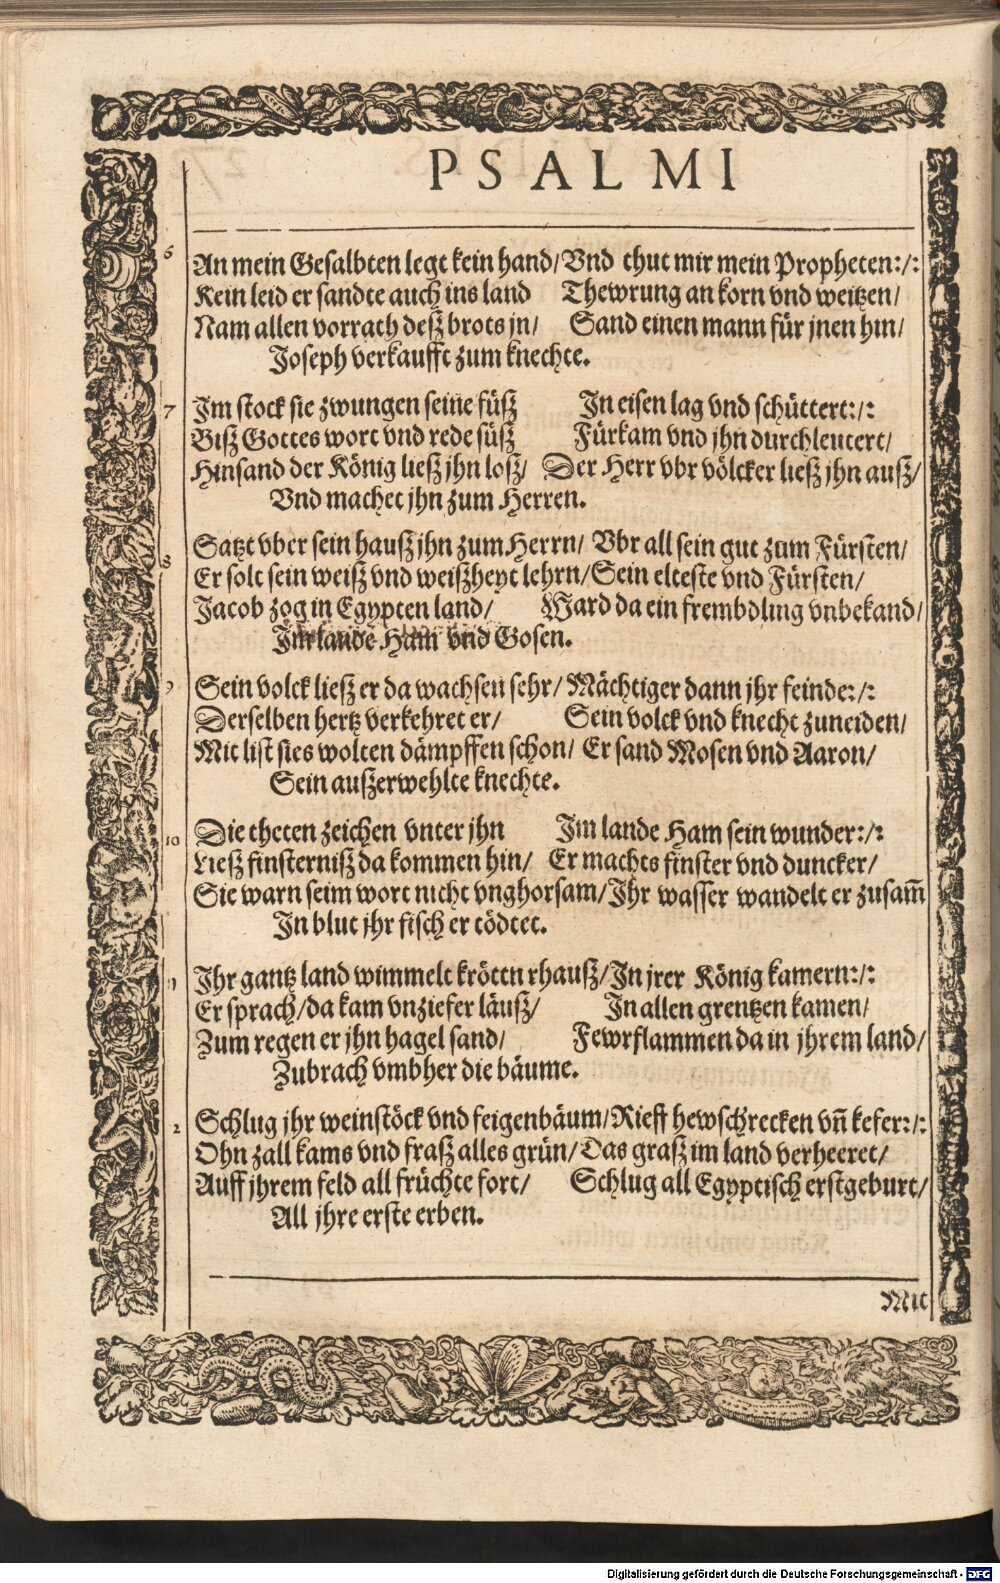 PSALMI
6 An mein Gesalbten legt kein hand/ Vnd thut mir mein Propheten:/:
Kein leid er sandte auch ins land Thewrung an korn vnd weitzen/
Nam allen vorrath desz brots jn/ Sand einen mann für jnen hin/
Joseph verkaufft zum knechte.
7 Im stock sie zwungen seine füsz In eisen lag vnd schüttert:/:
Bisz Gottes wort vnd rede süsz Fürkam vnd jhn durchleutert/
Hinsand der König liesz jhn losz/ Der Herr vbr völcker liesz jhn ausz/
Vnd machet jhn zum Herren.
8 Satzt vber sein hausz jhn zum Herrn/ Vbr all sein gut zum Fürsten/
Er solt sein weisz vnd weiszheyt lehrn/ Sein elteste vnd Fürsten/
Jacob zog in Egypten land/ Ward da ein frembdling vnbekand/
Im lande Ham vnd Gosen.
9 Sein volck liesz er da wachsen sehr/ Mächtiger dann jhr feinde:/:
Derselben hertz verkehret er/ Sein volck vnd knecht zuneiden/
Mit list sies wolten dämpffen schon/ Er sand Mosen vnd Aaron/
Sein auszerwehlte knechte.
10 Die theten zeichen vnter jhn Im lande Ham sein wunder:/:
Liesz finsternisz da kommen hin/ Er machts finster vnd duncker/
Sie warn seim wort nicht vnghorsam/ Jhr wasser wandelt er zusam̃
In blut jhr fisch er tödtet.
Jhr gantz land wimmelt krötten rhausz/ In jrer König kamern:/:
Er sprach/ da kam vnziefer läusz/ In allen grentzen kamen/
Zum regen er jhn hagel sand/ Fewrflammen da in jhrem land/
Zubrach vmbher die bäume.
2 Schlug jhr weinstöck vnd feigenbäum/ Rieff hewschrecken vñ kefer:/:
Ohn zall kams vnd frasz alles grün/ Das grasz im land verheeret/
Auff jhrem feld all früchte fort/ Schlug all Egyptisch erstgeburt/
All jhre erste erben.
Mit
Digitalisierung gefördert durch die Deutsche Forschungsgemeinschaft - DFG